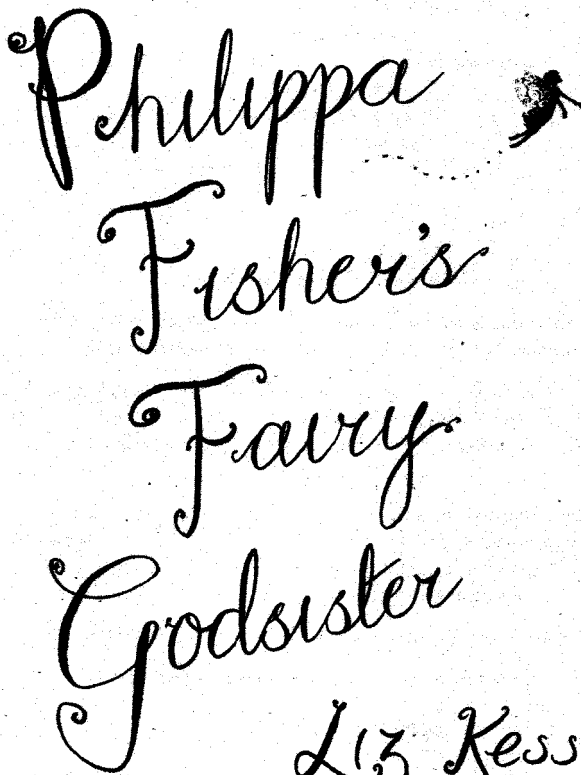 Philippa
Fisher's
Fairy
Godsister
Liz Kess